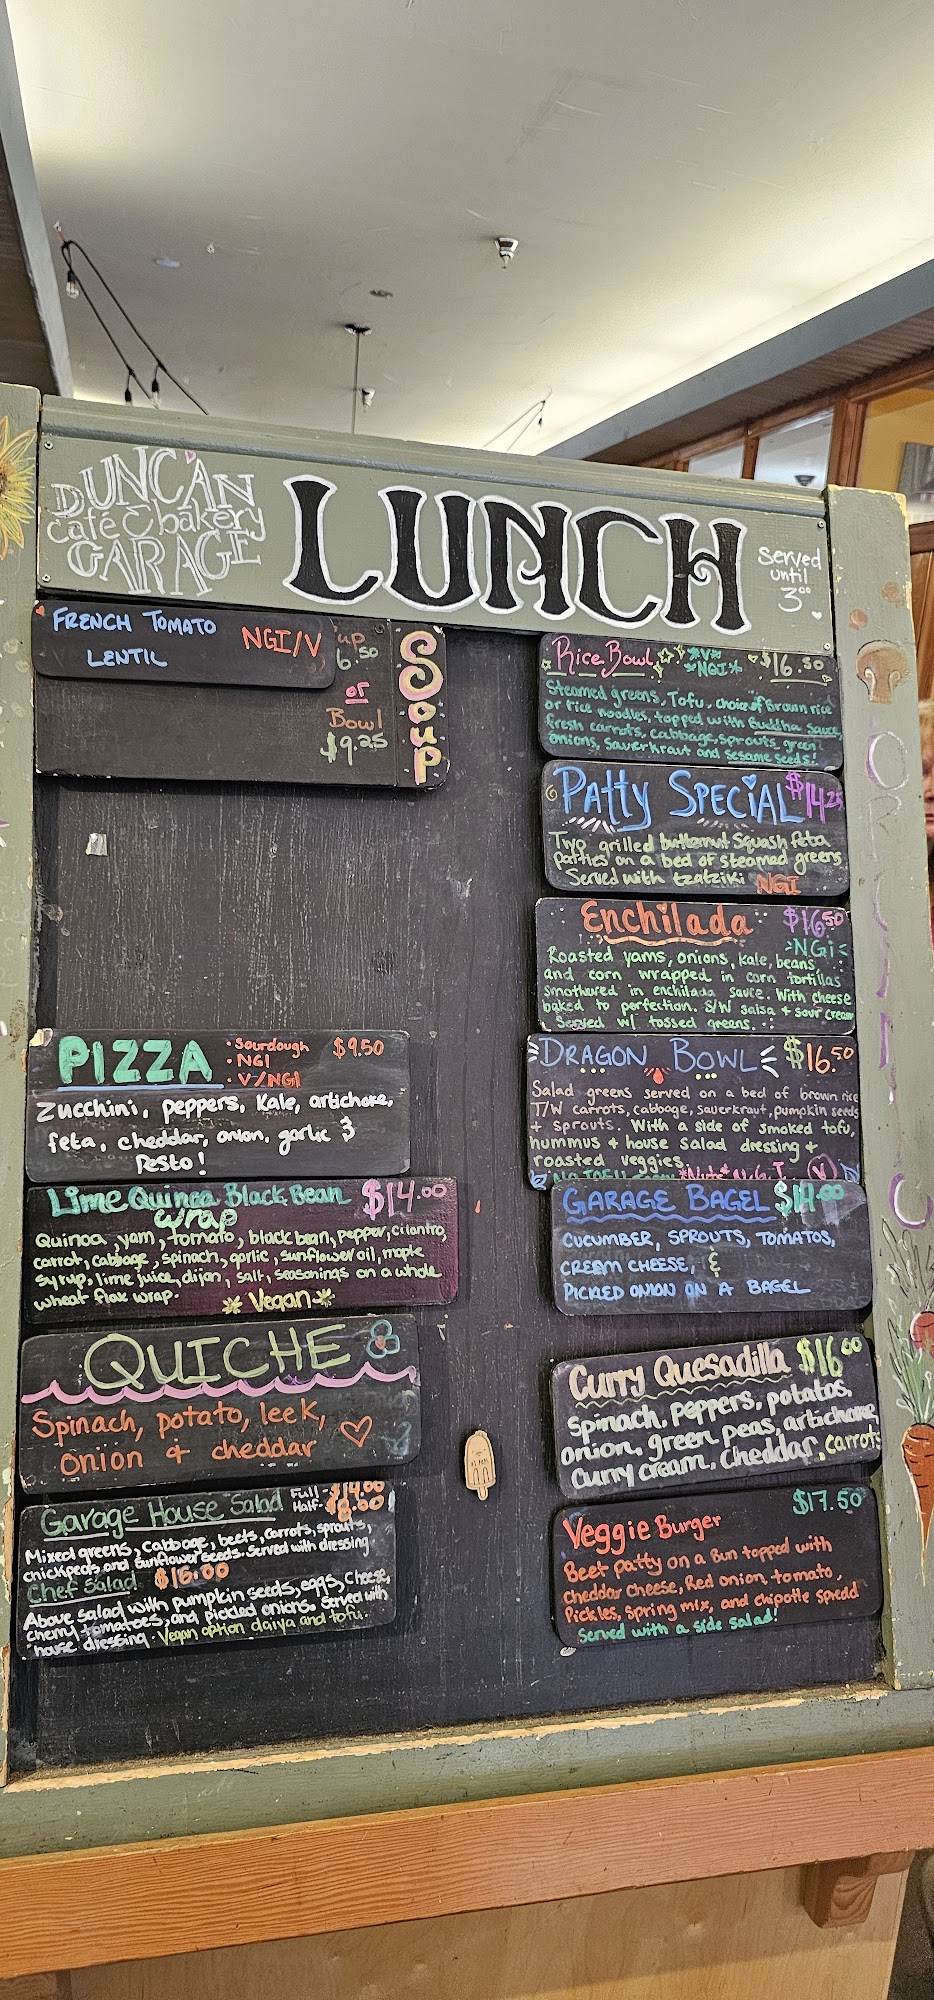 DUNCAN
café & bakery
GARAGE
LUNCH
served
until
3⁰⁰
FRENCH TOMATO
LENTIL
NGI/V
up
6.50
or
Bowl
$9.25
Soup
PIZZA
• Sourdough
• NGI
• V/NGI
$9.50
Zucchini, peppers, Kale, artichoke,
feta, cheddar, onion, garlic &
Pesto!
Lime Quinoa Black Bean
Wrap
$14.00
Quinoa, yam, tomato, black bean, pepper, cilantro,
carrot, cabbage, spinach, garlic, sunflower oil, maple
syrup, lime juice, dijan, salt, seasonings on a whole
wheat flax wrap.
Vegan
QUICHE
Spinach, potato, leek,
onion & cheddar
Garage House Salad
Full - $14.00
Half - $8.00
Mixed greens, cabbage, beets, carrots, sprouts,
chickpeas and sunflower seeds. Served with dressing.
Chef Salad $16.00
Above salad with pumpkin seeds, eggs, cheese,
cherry tomatoes, and pickled onions. Served with
house dressing. Vegan option daiya and tofu.
Rice Bowl
*V*
*NGI*
$16.50
Steamed greens, Tofu, choice of Brown rice
or rice noodles, topped with Buddha Sauce,
fresh carrots, cabbage, sprouts, green
onions, sauerkraut and sesame seeds!
Patty Special $14.25
Two grilled butternut squash feta
patties on a bed of steamed greens
Served with tzatziki NGI
Enchilada $16.50
NGI
Roasted yams, onions, kale, beans,
and corn wrapped in corn tortillas
smothered in enchilada sauce. With cheese
baked to perfection. S/W salsa + sour cream
Served w/ tossed greens.
DRAGON BOWL $16.50
Salad greens served on a bed of brown rice
T/W carrots, cabbage, sauerkraut, pumpkin seeds
+ sprouts. With a side of smoked tofu,
hummus + house salad dressing +
roasted veggies.
GARAGE BAGEL $14.00
CUCUMBER, SPROUTS, TOMATOS,
CREAM CHEESE, &
PICKLED ONION ON A BAGEL
Curry Quesadilla $16.00
Spinach, Peppers, potatos,
onion, green peas, artichoke
Curry cream, Cheddar, carrots
$17.50
Veggie Burger
Beet patty on a Bun topped with
cheddar cheese, Red onion, tomato,
Pickles, spring mix, and chipotle spread
Served with a side salad!
ORGANIC